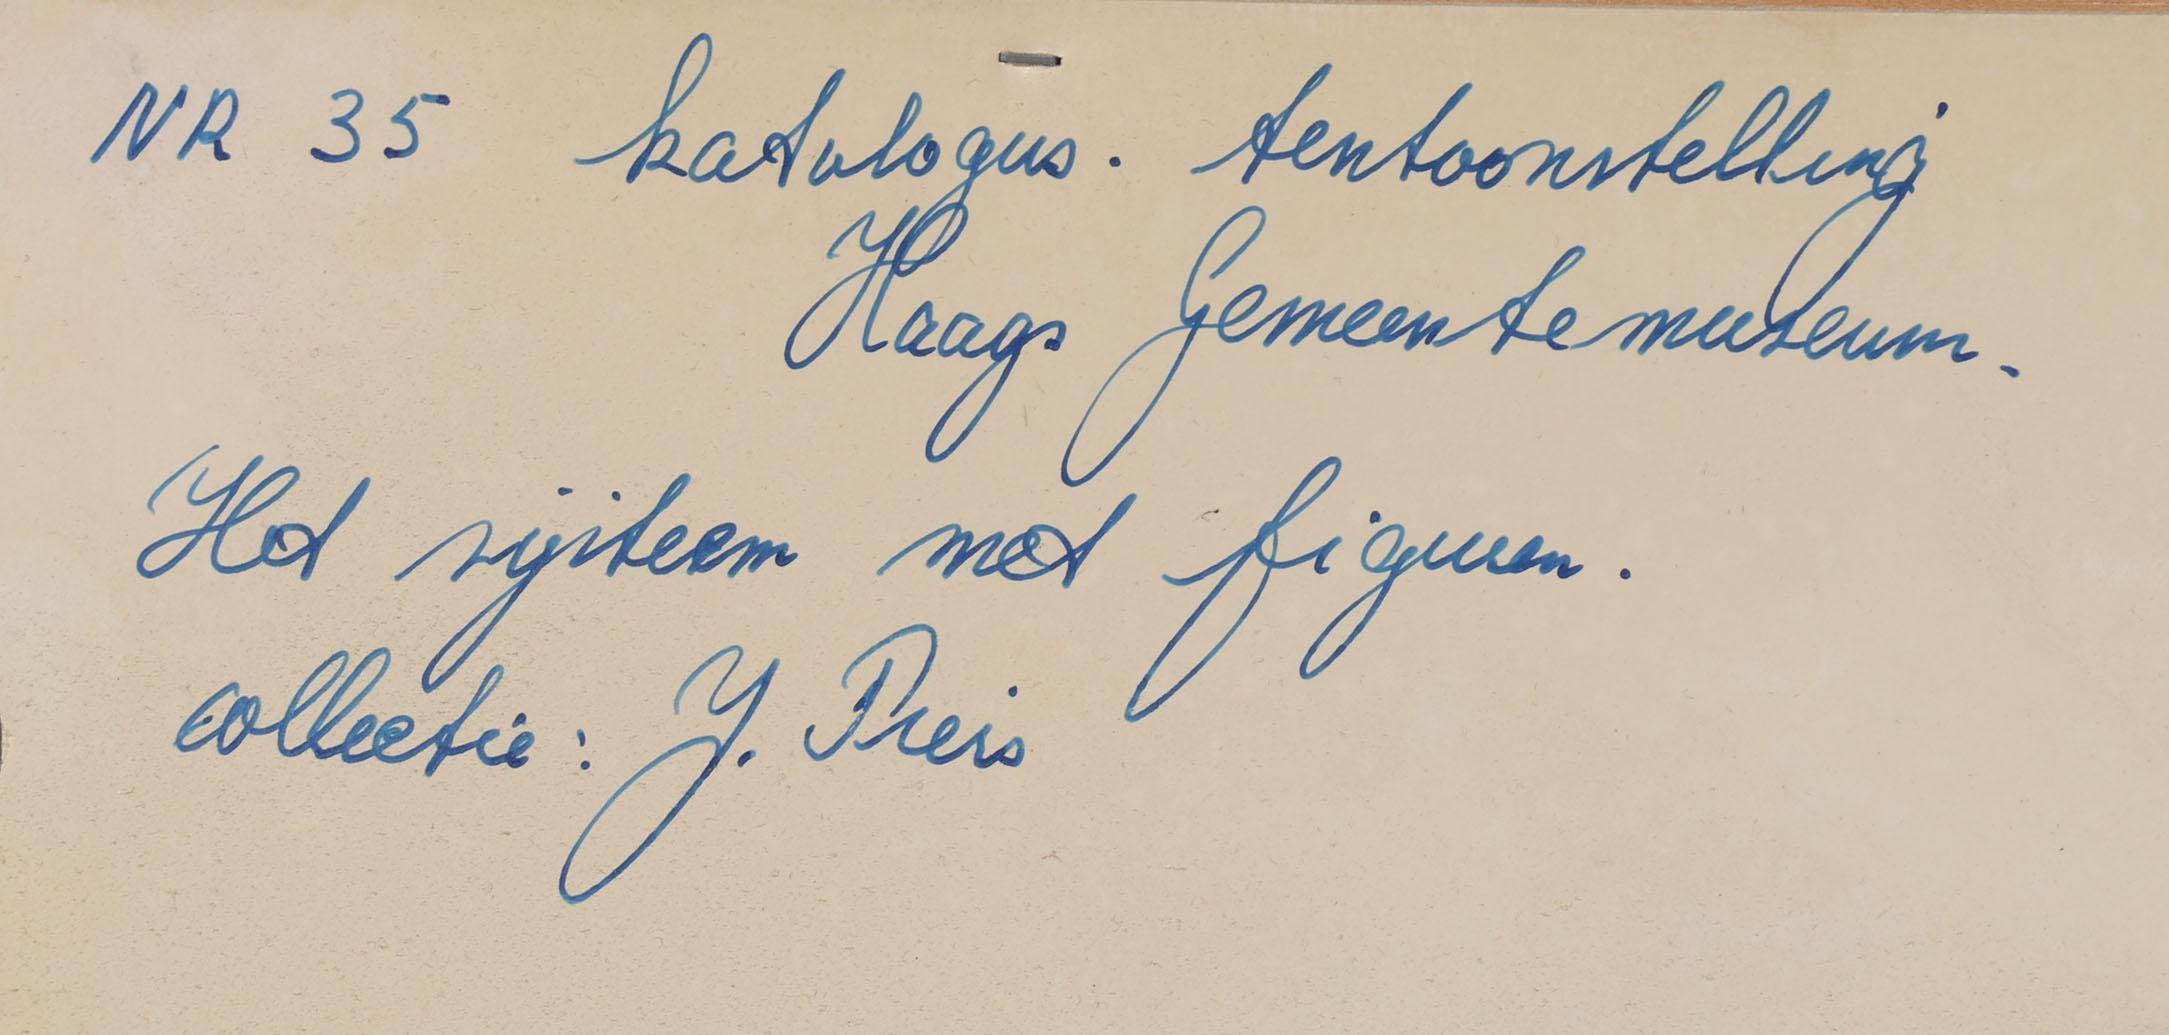 NR 35 katalogus. tentoonstelling
Haags Gemeentemuseum.
Het sijsteem met figuren.
collectie: Y. Preis